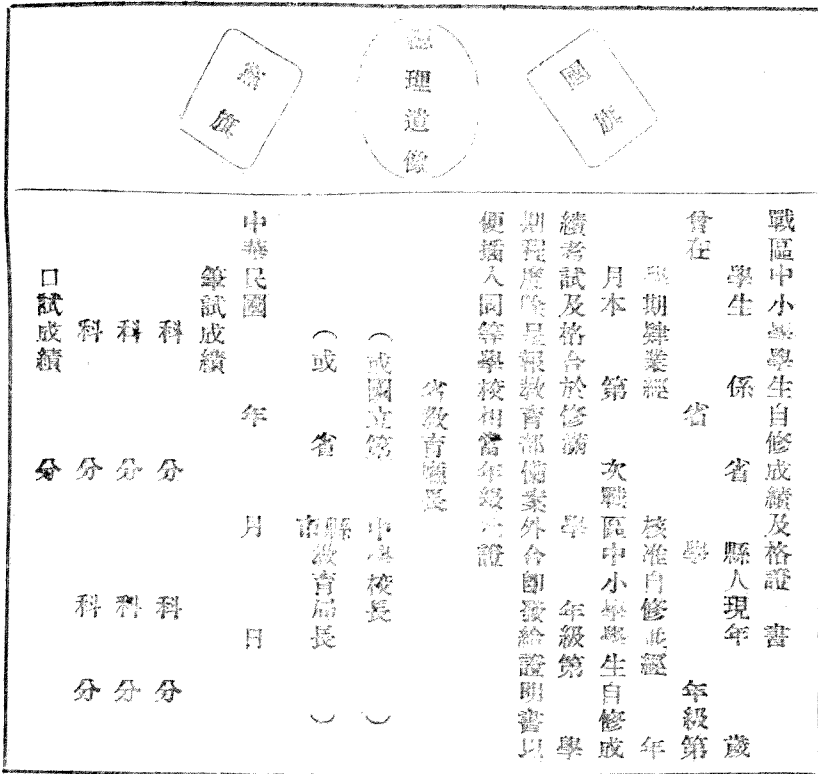 國旗
總理遺像
黨旗
戰區中小學學生自修成績及格證書
學生 係 省 縣人現年 歲
曾在 省 學 年級第
學期肄業經 核准自修並經 年
月本 第 次戰區中小學學生自修成
績考試及格合於修滿 學 年級第 學
期程度除呈報教育部備案外合卽發給證明書以
便插入同等學校相當年級 證
省教育廳長
(或國立第 中學校長 )
(或 省 縣市教育局長 )
中華民國 年 月 日
筆試成績
科 分 科 分
科 分 科 分
科 分 科 分
口試成績 分